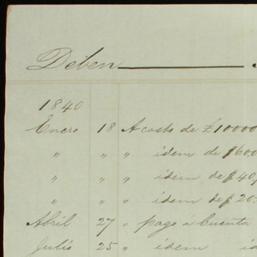 Deben
1840
Enero 18 A costo de £10000
" " " idem de £600
" " " idem de £40
" " " idem de £20
Abril 27 " pago à Cuenta
Julio 25 " idem id